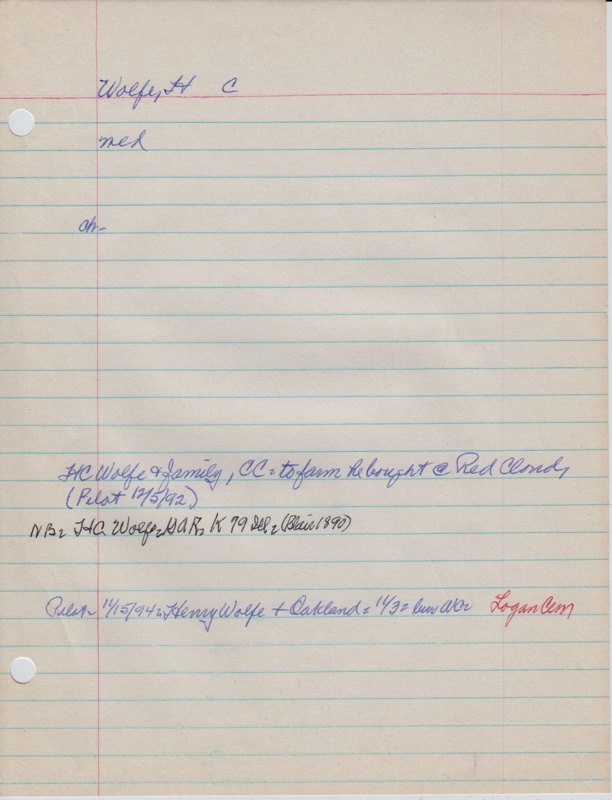 Wolfe, H C
med
ch-
HC Wolfe & family, CC = to farm he bought @ Red Cloud,
(Pilot 12/5/92)
NB = H.C. Wolfe = GAR = K 79 Ill = (Blair 1890)
Pilot = 11/15/94 = Henry Wolfe + Oakland = 11/3 = bur WC = Logan Cem